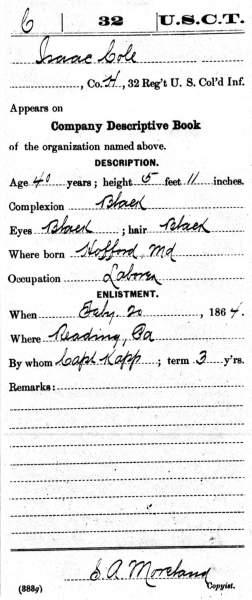 C 32 U.S.C.T.
Isaac Cole
, Co. H, 32 Reg't U. S. Col'd Inf.
Appears on
Company Descriptive Book
of the organization named above.
DESCRIPTION.
Age 40 years; height 5 feet 11 inches.
Complexion Black
Eyes Black; hair Black
Where born Hofford, Md
Occupation Laborer
ENLISTMENT.
When Feby. 20, 1864.
Where Reading, Pa
By whom Capt Kapp; term 3 y'rs.
Remarks:
E. A. Moreland
(383g) Copyist.